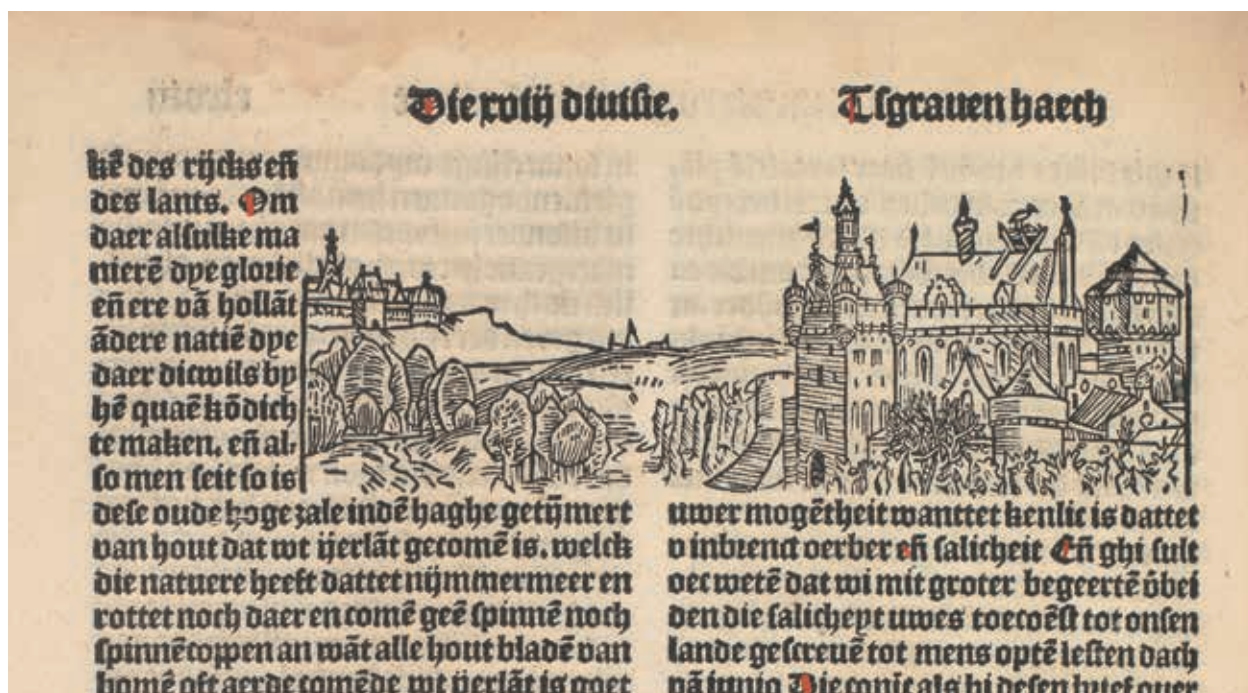 Die xviij diuisie.
Tsgrauen haech
kē des rijcks eñ
des lants. Om
daer alsulke ma
nierē dye glorie
eñ ere vā hollāt
ādere natiē dye
daer dicwils by
hē quaē kōdich
te maken. eñ al-
so men seit so is
dese oude hoge zale indē haghe getijmert
van hout dat wt ijerlāt gecomē is. welck
die natuere heeft dattet nijmmermeer en
rottet noch daer en comē geē spinnē noch
spinnēcoppen an wāt alle hout bladē van
bomē oft aerde comēde wt ijerlāt is goet
uwer mogētheit wanttet kenlic is dattet
v inbrenct oerber eñ salicheit Eñ ghi sult
oec wetē dat wi mit groter begeertē ôbei
den die salicheyt uwes toecōēst tot onsen
lande gescreuē tot mens optē lesten dach
vā iunio Die conīc als hi desen brief ouer